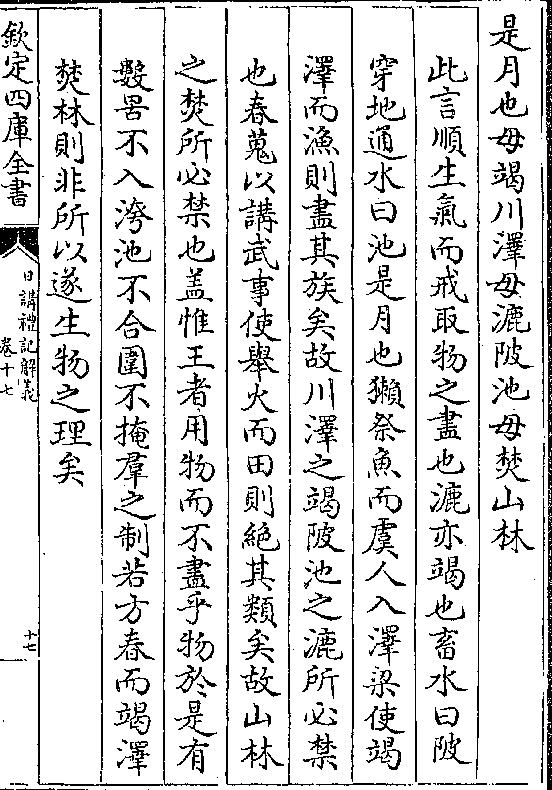 是月也毋竭川澤毋漉陂池毋焚山林
此言順生氣而戒取物之盡也漉亦竭也畜水曰陂
穿地通水曰池是月也獺祭魚而虞人入澤梁使竭
澤而漁則盡其族矣故川澤之竭陂池之漉所必禁
也春蒐以講武事使舉火而田則絶其類矣故山林
之焚所必禁也盖惟王者用物而不盡乎物於是有
數罟不入洿池不合圍不掩羣之制若方春而竭澤
焚林則非所以遂生物之理矣
欽定四庫全書
日講禮記解義
卷十七
十七